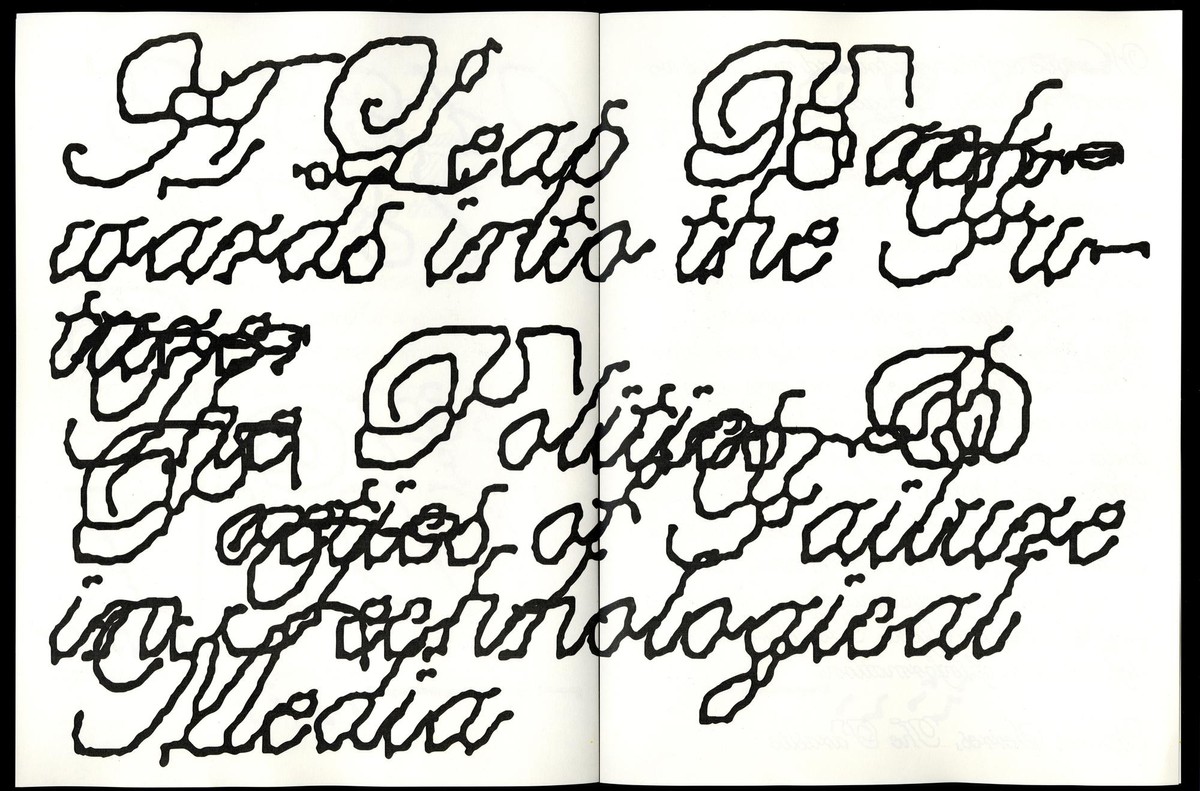 A Leap Back-
wards into the Fu-
ture:
Poetics of Failure
in Technological
Media